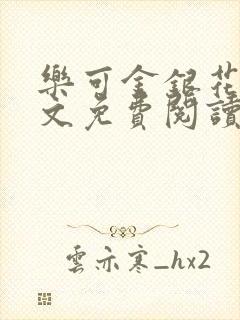 樂可金銀花
文免費閱讀
雲亦寒_hx2